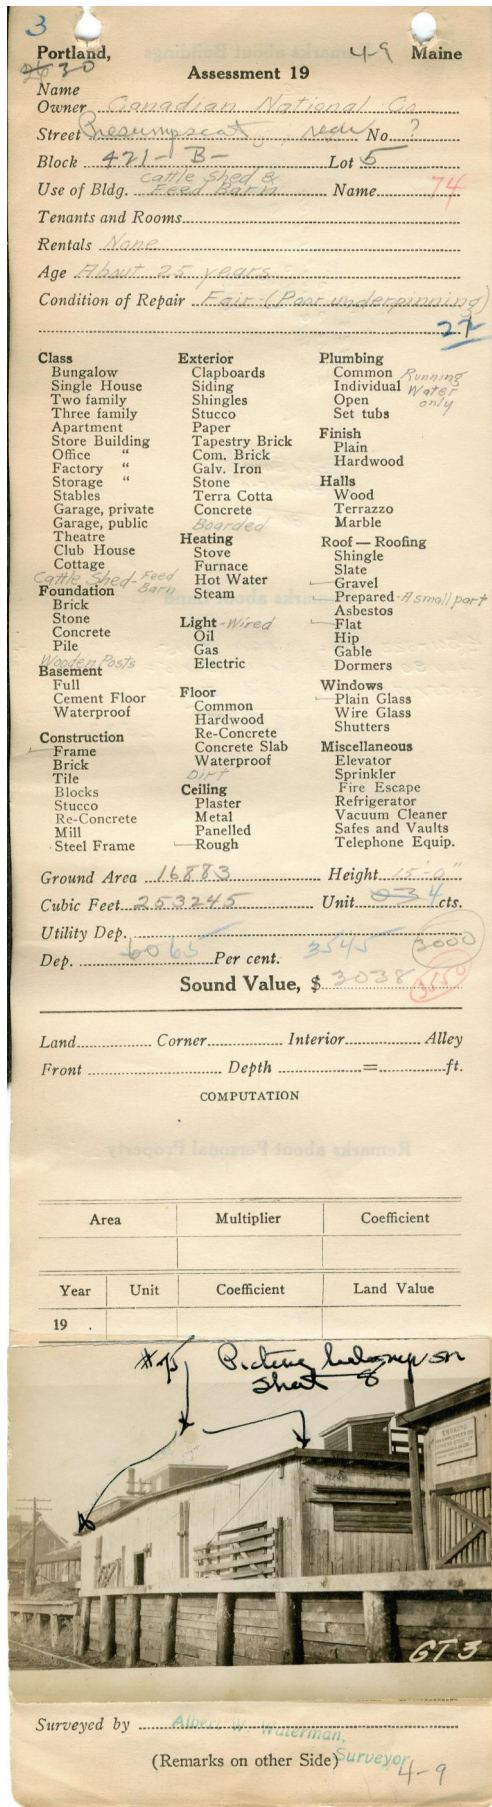 3
Portland, 49 Maine
26 30
Assessment 19
Name
Owner Canadian National Co
Street Presumpscot, rear No. ?
Block 421-B- Lot 5
Cattle Shed &
Use of Bldg. Feed Barn Name 74
Tenants and Rooms
Rentals None
Age About 25 years
Condition of Repair Fair-(Poor underpinning)
27
Class
Bungalow
Single House
Two family
Three family
Apartment
Store Building
Office "
Factory "
Storage "
Stables
Garage, private
Garage, public
Theatre
Club House
Cottage
Cattle Shed-Feed Barn
Foundation
Brick
Stone
Concrete
Pile
Wooden Posts
Basement
Full
Cement Floor
Waterproof
Construction
Frame
Brick
Tile
Blocks
Stucco
Re-Concrete
Mill
Steel Frame
Exterior
Clapboards
Siding
Shingles
Stucco
Paper
Tapestry Brick
Com. Brick
Galv. Iron
Stone
Terra Cotta
Concrete
Boarded
Heating
Stove
Furnace
Hot Water
Steam
Light-Wired
Oil
Gas
Electric
Floor
Common
Hardwood
Re-Concrete
Concrete Slab
Waterproof
Dirt
Ceiling
Plaster
Metal
Panelled
Rough
Plumbing
Common Running
Individual Water
Open only
Set tubs
Finish
Plain
Hardwood
Halls
Wood
Terrazzo
Marble
Roof — Roofing
Shingle
Slate
Gravel
Prepared-A small part
Asbestos
Flat
Hip
Gable
Dormers
Windows
Plain Glass
Wire Glass
Shutters
Miscellaneous
Elevator
Sprinkler
Fire Escape
Refrigerator
Vacuum Cleaner
Safes and Vaults
Telephone Equip.
Ground Area 16883 Height 15'-0"
Cubic Feet 253245 Unit 03 4 cts.
Utility Dep.
Dep. 60 65 Per cent. 3545 3000
Sound Value, $ 3038 3150
Land Corner Interior Alley
Front Depth = ft.
COMPUTATION
Area Multiplier Coefficient
Year Unit Coefficient Land Value
19 .
#75 Picture belongs on
Sheet 8
GT 3
Surveyed by Albert W. Waterman,
Surveyor
(Remarks on other Side)
4-9